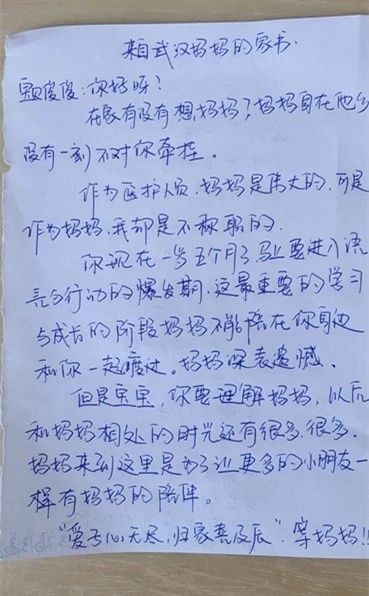 来自武汉妈妈的家书
俊俊:你好呀?
在家有没有想妈妈?妈妈身在他乡
没有一刻不对你牵挂。
作为医护人员,妈妈是伟大的,可是
作为妈妈,我却是不称职的。
你现在一岁五个月了,马上要进入语
言与行动的爆发期,这最重要的学习
与成长的阶段妈妈不能陪在你身边
和你一起度过。妈妈深表遗憾。
但是宝宝,你要理解妈妈,以后
和妈妈相处的时光还有很多,很多。
妈妈来到这里是为了让更多的小朋友一
样有妈妈的陪伴。
“爱子心无尽,归家喜及辰”.等妈妈!!